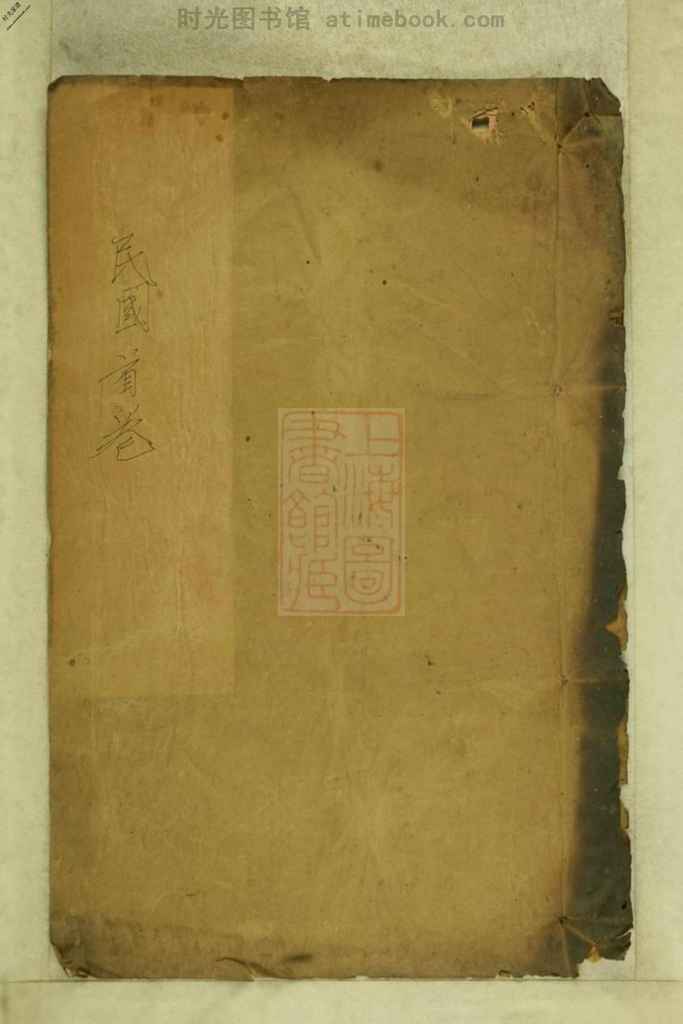 时光图书馆 atimebook.com
民國 首卷
上海圖
書館藏